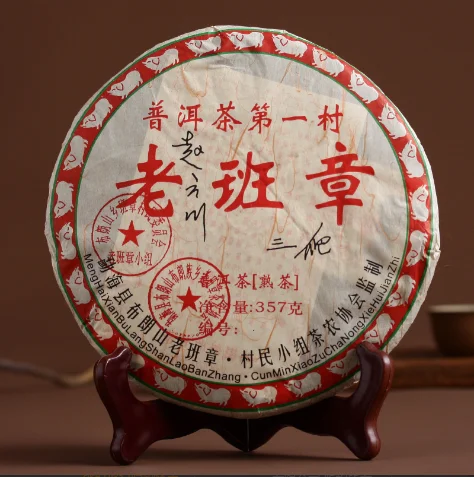 普洱茶第一村
老班章
三爬
普洱茶[熟茶]
净含量:357克
编号:
勐海县布朗山老班章·村民小组茶农协会监制
MengHaiXianBuLangShanLaoBanZhang·CunMinXiaoZuChaNongXieHuiJianZhi
老班章小组